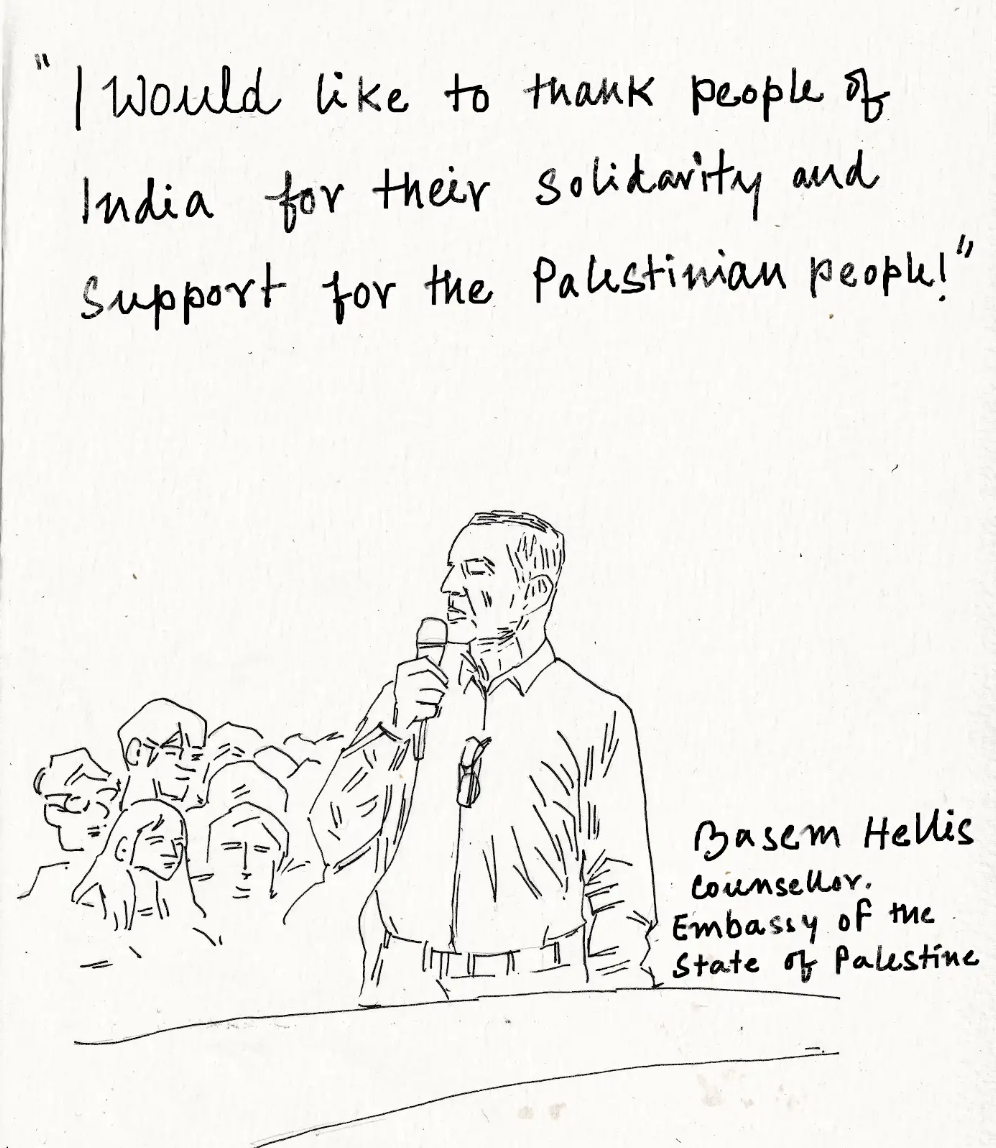 "I Would like to thank people of
India for their solidarity and
support for the Palestinian people!"
Basem Hellis
Counsellor.
Embassy of the
State of Palestine